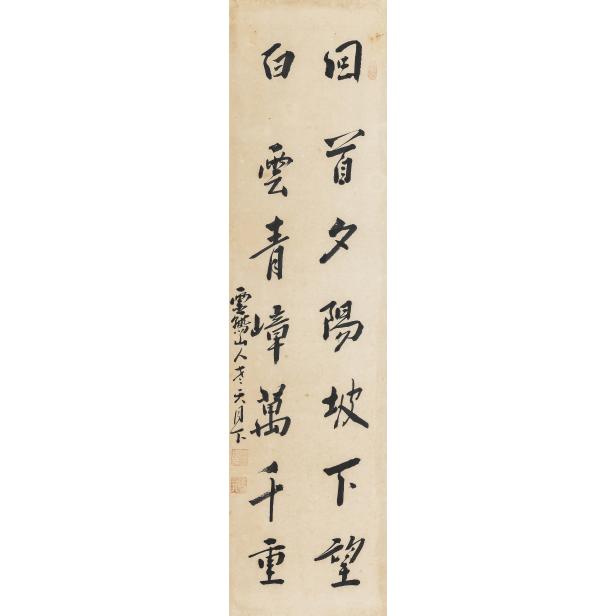 回首夕陽坡下望
白雲青嶂萬千重
雲　山人　天月下